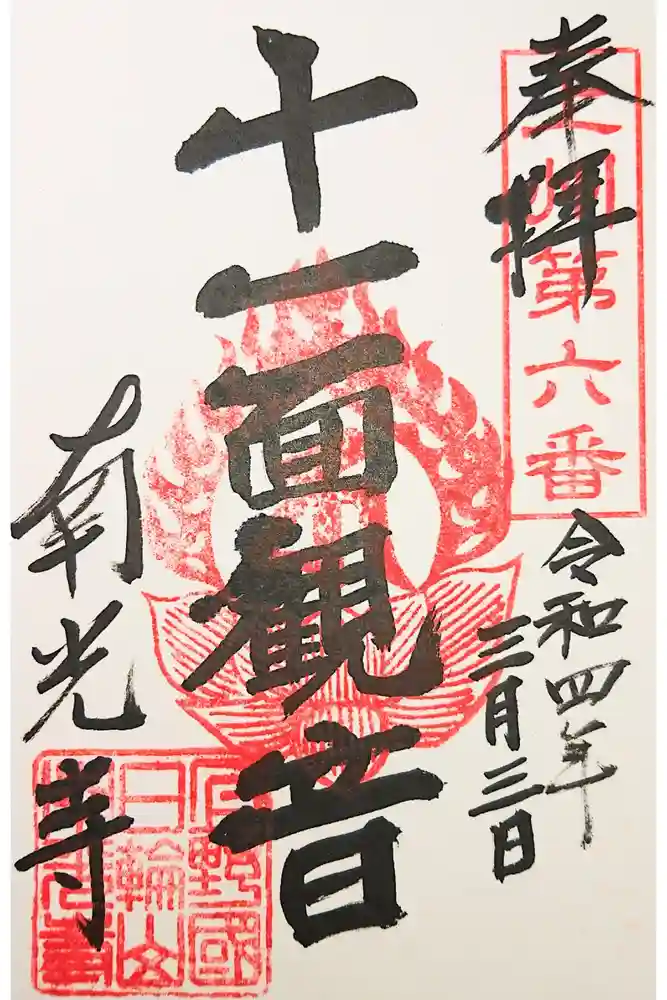 奉拝
第六番
令和四年
三月三日
十一面観音
南光寺
野國
日輪山